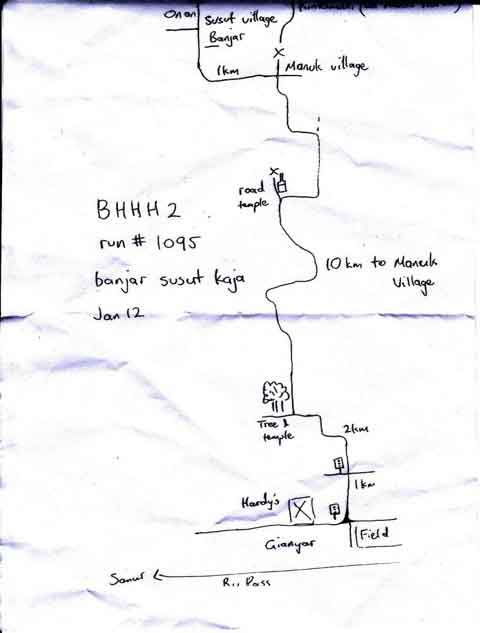 Onan
Susut village
Banjar
1km
Manuk village
road
temple
BHHH 2
run # 1095
banjar susut kaja
Jan 12
10 km to Manuk
Village
Tree &
temple
2km
1km
Hardy's
X
Field
Gianyar
Sanur
Pass